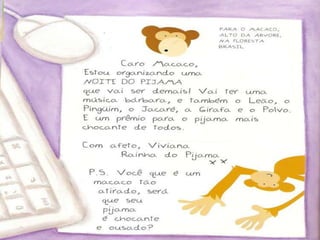 PARA O MACACO,
ALTO DA ÁRVORE,
NA FLORESTA
BRASIL
Caro Macaco,
Estou organizando uma
NOITE DO PIJAMA
que vai ser demais! Vai ter uma
música bárbara, e também o Leão, o
Pingüim, o Jacaré, a Girafa e o Polvo.
E um prêmio para o pijama mais
chocante de todos.
Com afeto, Viviana
Rainha do Pijama
x x
P.S. Você que é um
macaco tão
atirado, será
que seu
pijama
é chocante
e ousado?